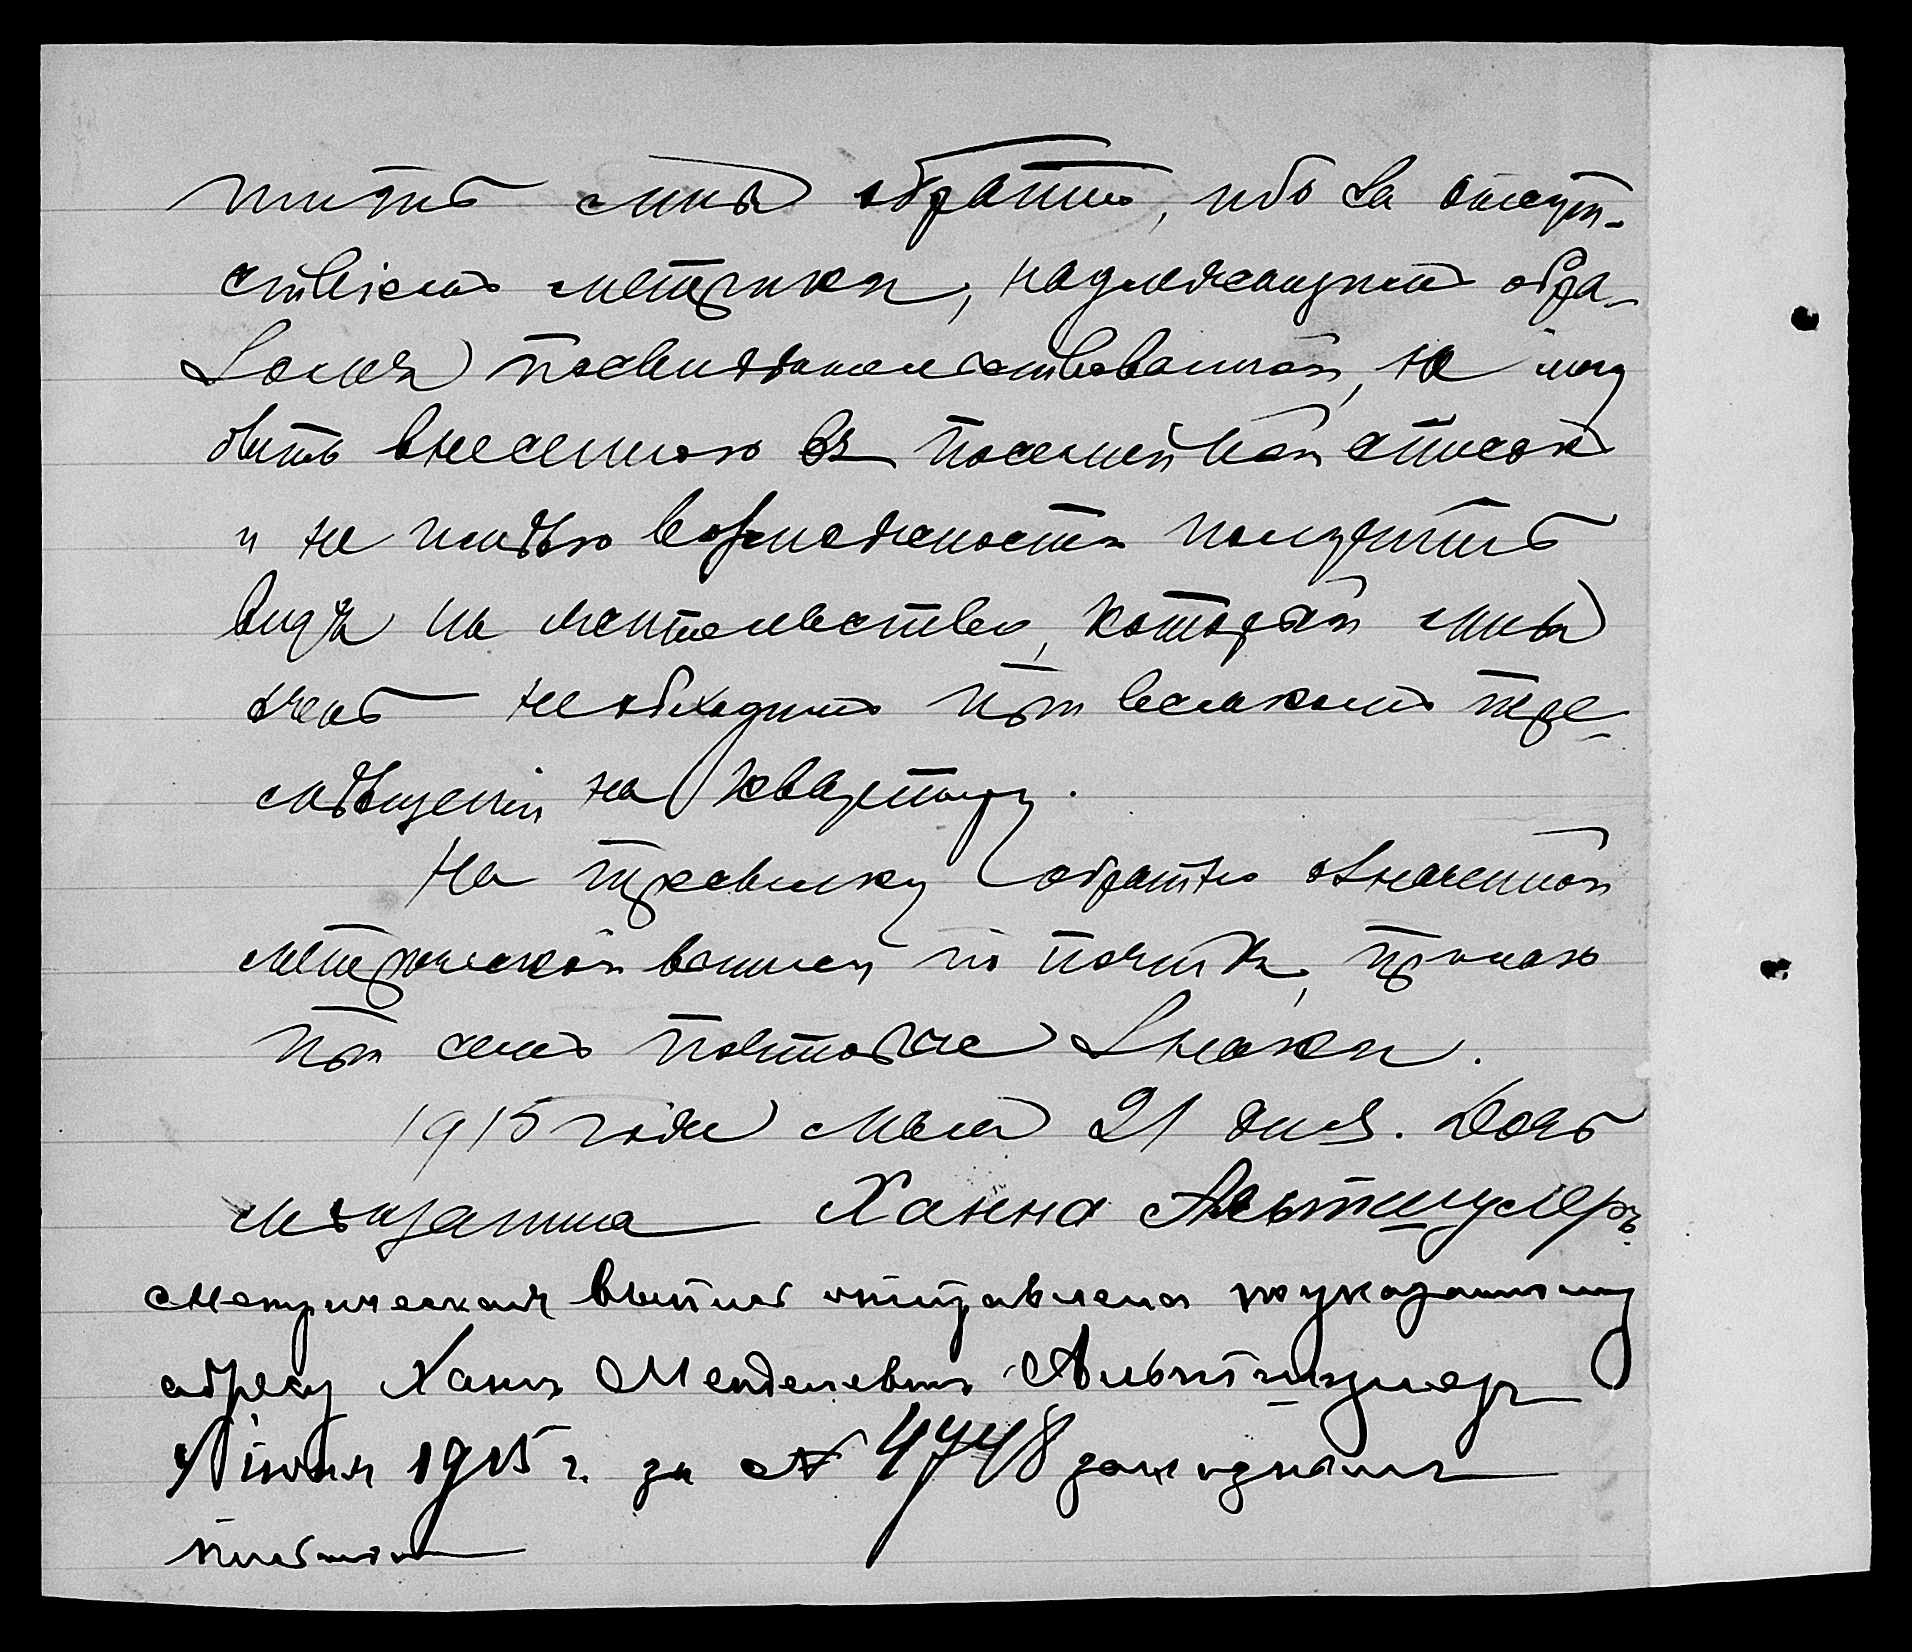 тить мнѣ обратно, ибо за отсут-
ствіемъ метрики, надлежащимъ обра-
зомъ посвидѣтельствованной, не могу
быть внесенною въ посемейный списокъ
и не имѣю возможности получить
видъ на жительство, который мнѣ
необходимъ при всякомъ пере-
мѣщеніи на квартиру.
На пересылку обратно означенной
метрической выписи по почтѣ, прилагаю
при семъ почтовые знаки.
1915 года Мая 21 дня. Дочь
мѣщанина Ханна Альтшулеръ
Метрическая выпись отправлена по указанному
адресу Ханѣ Менделевнѣ Альтшулеръ
іюня 1915 г. за № 4748 заказнымъ
письмомъ